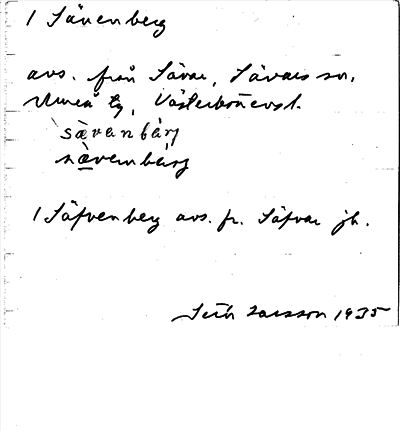 1 Sävenberg
avs. från Sävar, Sävars sn.
Umeå tg, Västerbottensl.
`sàvanbærj
sävembærj
1 Säfvenberg avs. fr. Säfvar jb.
Larsson 1935